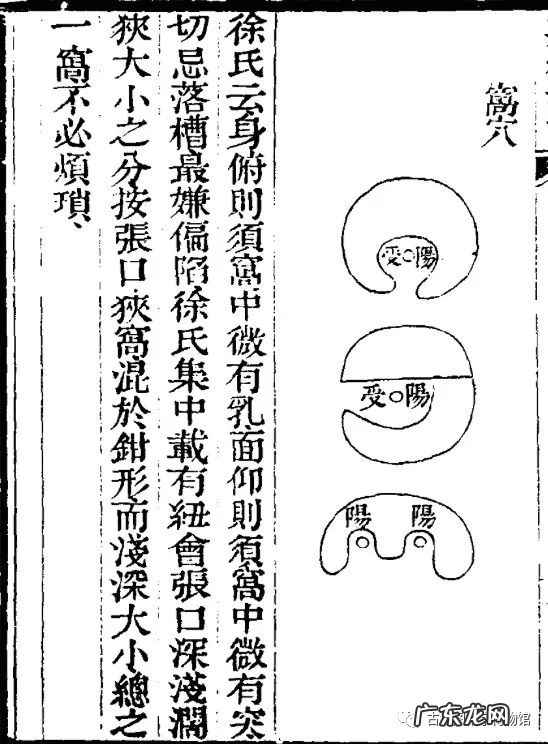 窩穴
受○陽
受○陽
陽 陽
徐氏云身俯則須窩中微有乳面仰則須窩中微有突
切忌落槽最嫌偏陷徐氏集中載有紐會張口深淺濶
狹大小之分按張口狹窩混於鉗形而淺深大小總之
一窩不必煩瑣、
广东龙网